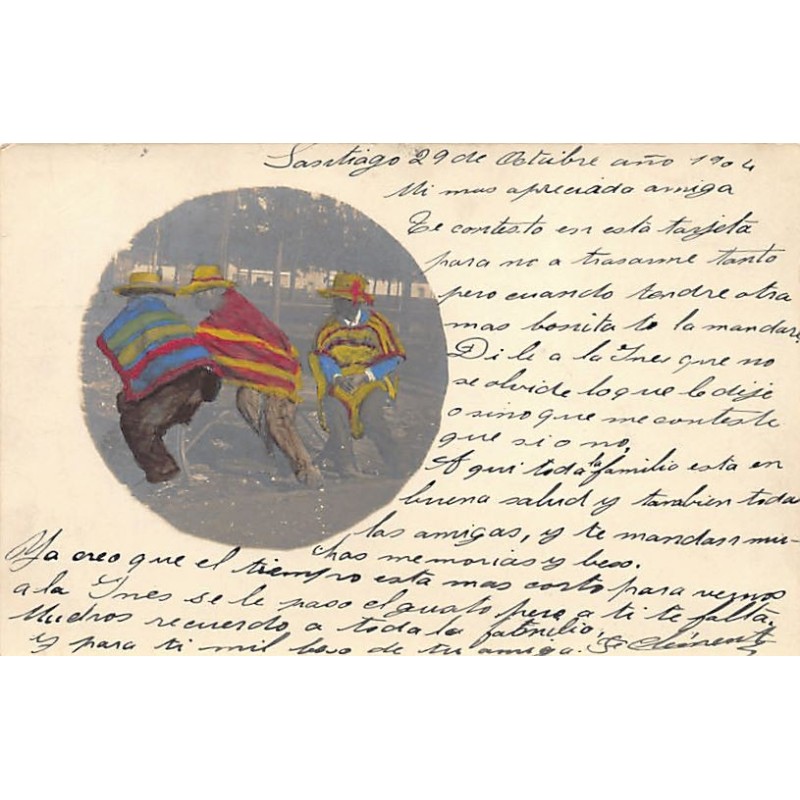 Santiago 29 de Octubre año 1904
Mi mas apreciada amiga
Te contesto en esta tarjeta
para no a trasarme tanto
pero cuando tendre otra
mas bonita te la mandare
Di le a la Ines que no
se olvide lo que le dije
o sino que me conteste
que si o no,
A qui toda la familia esta en
buena salud y tambien toda
las amigas, y te mandan mu-
chas memorias y beso.
Ya creo que el tiempo esta mas corto para vernos
a la Ines se le paso el gusto pero a ti te falta.
Muchos recuerdo a toda la familia,
y para ti mil beso de tu amiga.